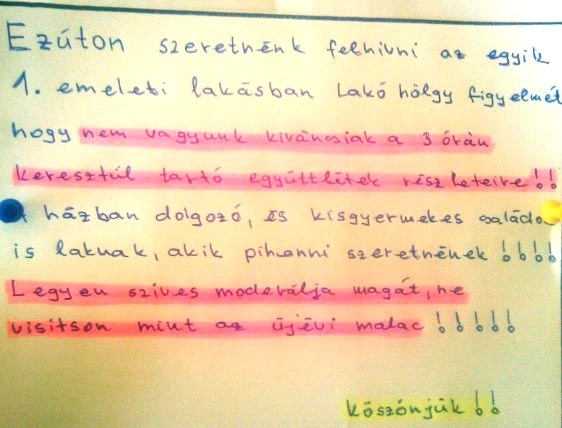 Ezúton szeretnénk felhívni az egyik
1. emeleti lakásban lakó hölgy figyelmét
hogy nem vagyunk kiváncsiak a 3 órán
keresztül tartó együttlétek részleteire!!
A házban dolgozó, és kisgyermekes családo
is laknak, akik pihenni szeretnének!!!!
Legyen szives moderálja magát, ne
visitson mint az újévi malac!!!!!
Köszönjük!!